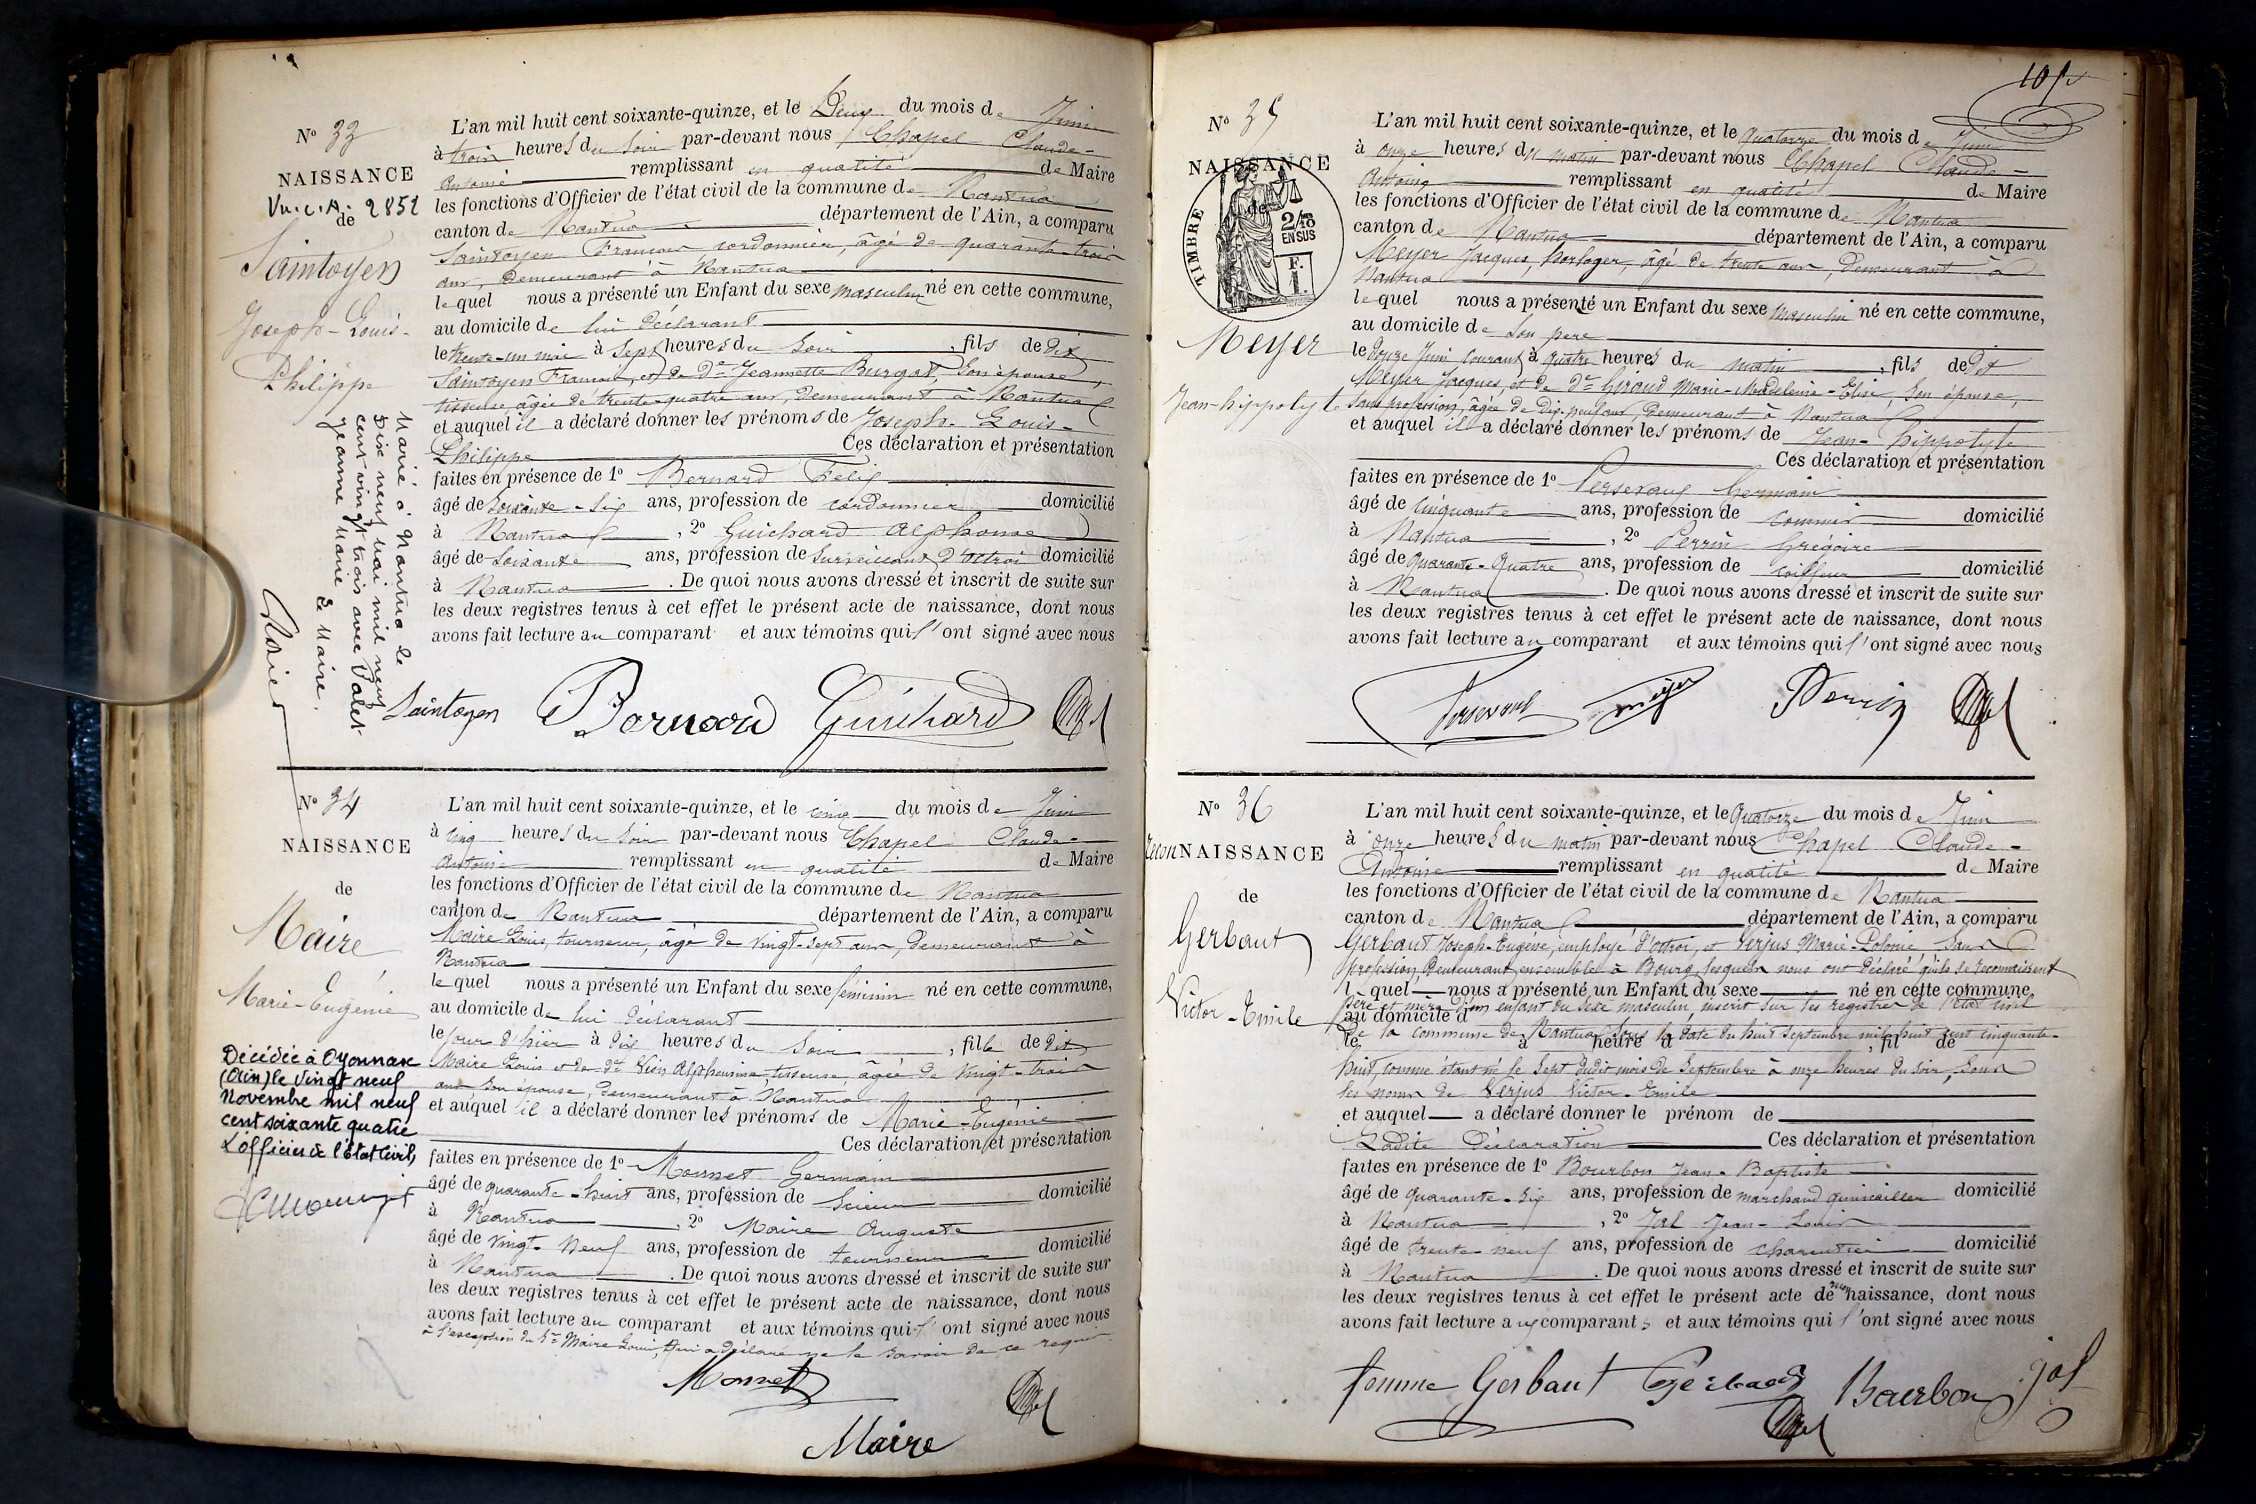 N° 33
NAISSANCE
Vu. c. A. 2852
de
Saintoyen
Joseph-Louis-
Philippe
Marié à Nantua le
Dix neuf Mai mil neuf
cent vingt trois avec Valet
Jeanne Marie Le Maire,
L'an mil huit cent soixante-quinze, et le Deux du mois de Juin
à trois heures du soir par-devant nous Chapel Claude-
Antoine remplissant en qualité de Maire
les fonctions d'Officier de l'état civil de la commune de Nantua
canton de Nantua département de l'Ain, a comparu
Saintoyen François cordonnier, âgé de quarante-trois
ans, demeurant à Nantua
lequel nous a présenté un Enfant du sexe masculin né en cette commune,
au domicile de lui déclarant
le trente-un mai à sept heures du soir, fils de dit
Saintoyen François, et de De Jeannette Burgat, son épouse,
tisseuse, âgée de trente-quatre ans, demeurant à Nantua
et auquel il a déclaré donner les prénoms de Joseph-Louis-
Philippe Ces déclaration et présentation
faites en présence de 1° Bernard Félix
âgé de soixante-six ans, profession de cordonnier domicilié
à Nantua, 2° Guichard Alphonse
âgé de soixante ans, profession de surveillant d'octroi domicilié
à Nantua. De quoi nous avons dressé et inscrit de suite sur
les deux registres tenus à cet effet le présent acte de naissance, dont nous
avons fait lecture au comparant et aux témoins qui l'ont signé avec nous
Saintoyen Bernard Guichard
N° 34
NAISSANCE
de
Maire
Marie-Eugénie
Décédée à Oyonnax
(Ain) le vingt neuf
Novembre mil neuf
cent soixante quatre
L'officier de l'Etat Civil,
L'an mil huit cent soixante-quinze, et le cinq du mois de Juin
à cinq heures du soir par-devant nous Chapel Claude-
Antoine remplissant en qualité de Maire
les fonctions d'Officier de l'état civil de la commune de Nantua
canton de Nantua département de l'Ain, a comparu
Maire Louis, tourneur, âgé de vingt-sept ans, demeurant à
Nantua
lequel nous a présenté un Enfant du sexe féminin né en cette commune,
au domicile de lui déclarant
le jour d'hier à dix heures du soir, fille de dit
Maire Louis et de De Vion Alphonsine, tisseuse, âgée de vingt-trois
ans son épouse, demeurant à Nantua
et auquel il a déclaré donner les prénoms de Marie-Eugénie
Ces déclaration et présentation
faites en présence de 1° Monnet Germain
âgé de quarante-huit ans, profession de scieur domicilié
à Nantua, 2° Maire Auguste
âgé de vingt-neuf ans, profession de tourneur domicilié
à Nantua. De quoi nous avons dressé et inscrit de suite sur
les deux registres tenus à cet effet le présent acte de naissance, dont nous
avons fait lecture au comparant et aux témoins qui l'ont signé avec nous
à l'exception du Sr Maire Louis, qui a déclaré ne le savoir de ce requis
Monnet
Maire
105
N° 35
NAISSANCE
de
TIMBRE
2/10
EN SUS
F.
1.
Meyer
Jean-hippolyte
L'an mil huit cent soixante-quinze, et le quatorze du mois de Juin
à onze heures du matin par-devant nous Chapel Claude-
Antoine remplissant en qualité de Maire
les fonctions d'Officier de l'état civil de la commune de Nantua
canton de Nantua département de l'Ain, a comparu
Meyer Jacques, horloger, âgé de trente ans, demeurant à
Nantua
lequel nous a présenté un Enfant du sexe masculin né en cette commune,
au domicile de son père
le douze Juin courant à quatre heures du matin, fils de dit
Meyer Jacques, et de De Giraud Marie-Madeleine-Elise, son épouse,
sans profession, âgée de dix-neuf ans, demeurant à Nantua
et auquel il a déclaré donner les prénoms de Jean-hippolyte
Ces déclaration et présentation
faites en présence de 1° Perseraux Germain
âgé de cinquante ans, profession de commis domicilié
à Nantua, 2° Perrin Grégoire
âgé de quarante-quatre ans, profession de coiffeur domicilié
à Nantua. De quoi nous avons dressé et inscrit de suite sur
les deux registres tenus à cet effet le présent acte de naissance, dont nous
avons fait lecture au comparant et aux témoins qui l'ont signé avec nous
Perrin
N° 36
ReconNAISSANCE
de
Gerbaut
Victor-Emile
L'an mil huit cent soixante-quinze, et le Quatorze du mois de Juin
à onze heures du matin par-devant nous Chapel Claude-
Antoine remplissant en qualité de Maire
les fonctions d'Officier de l'état civil de la commune de Nantua
canton de Nantua département de l'Ain, a comparu
Gerbaut Joseph-Eugène, employé d'octroi, et Verjus Marie-Polonie, sans
profession demeurant ensemble à Bourg, lesquels nous ont déclaré qu'ils se reconnaissent
l quel nous a présenté un Enfant du sexe né en cette commune,
père et mère d'un enfant du sexe masculin, inscrit sur les registres de l'état civil
au domicile d
de la commune de Nantua, sous la date du huit septembre mil huit cent cinquante-
le à heure d, fil de
huit, comme étant né le sept dudit mois de Septembre à onze heures du soir, sous
les noms de Verjus Victor-Emile
et auquel a déclaré donner le prénom de
Ladite Déclaration Ces déclaration et présentation
faites en présence de 1° Bourbon Jean-Baptiste
âgé de quarante-six ans, profession de marchand quincailler domicilié
à Nantua, 2° Jal Jean-Louis
âgé de trente-neuf ans, profession de charcutier domicilié
à Nantua. De quoi nous avons dressé et inscrit de suite sur
les deux registres tenus à cet effet le présent acte de naissance, dont nous
avons fait lecture aux comparants et aux témoins qui l'ont signé avec nous
femme Gerbaut Gerbaut Bourbon jal